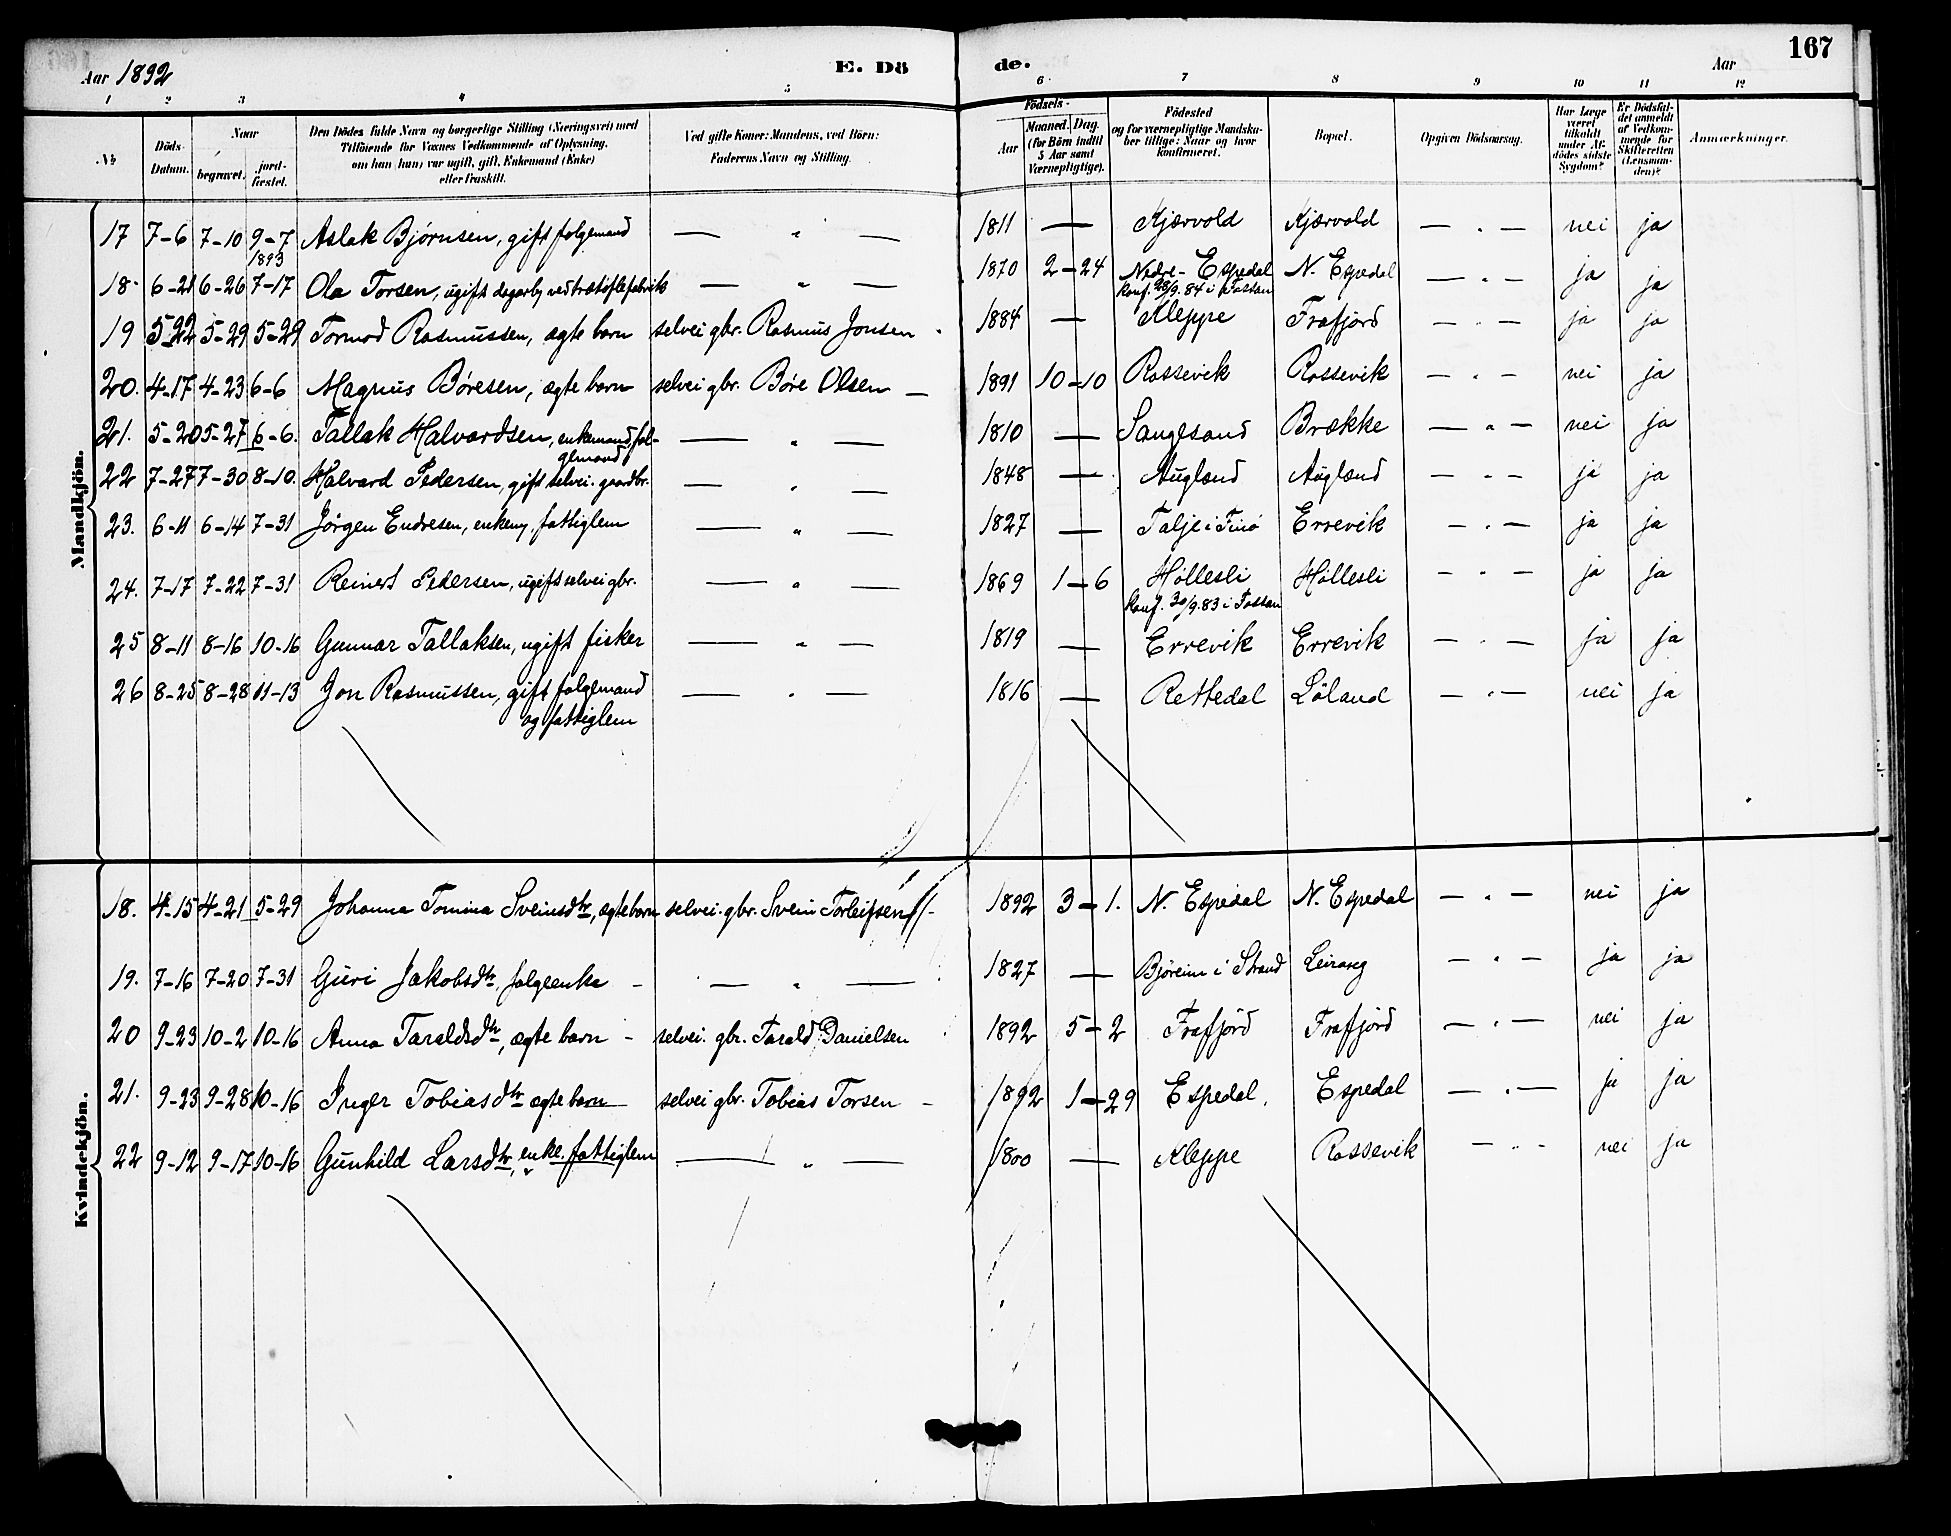 Aar 1892 E. Dö de. Aar 167
1 2 3 4 5 6 7 8 9 10 11 12
№ Döds-Datum. Naar begravet. jord-fæstet. Den Dödes fulde Navn og borgerlige Stilling (Næringsvei) med Tilföiende for Voxnes Vedkommende af Oplysning, om han (hun) var ugift, gift, Enkemand (Enke) eller fraskilt. Ved gifte Koner: Mandens, ved Börn: Faderens Navn og Stilling. Födsels- Aar Maaned. Dag. (for Börn indtil 5 Aar samt Værnepligtige). Födested og for værnepligtige Mandskaber tillige: Naar og hvor konfirmeret. Bopæl. Opgiven Dödsaarsag. Har Læge været tilkaldt under Afdödes sidste Sygdom? Er Dödsfaldet anmeldt af Vedkommende for Skifteretten (Lensmanden)? Anmærkninger.
Mandkjön.
17 7-6 7-10 9-7 1893 Aslak Bjørnsen, gift folgemand — " — 1811 — Kjærvold Kjærvold — " — nei ja
18 6-21 6-26 7-17 Ola Torsen, ugift dagarb. ved trætøflefabrik — " — 1870 2-24 Nedre-Espedal N. Espedal — " — ja ja
konf. 28/9.84 i Fossan
19 5-22 5-29 5-29 Tormod Rasmussen, ægte barn selvei gbr. Rasmus Jonsen 1884 — Kleppe Frafjord — " — ja ja
20. 4-17 4-23 6-6 Magnus Børesen, ægte barn selvei gbr. Børe Olsen — 1891 10-10 Rossevik Rossevik — " — nei ja
21. 5-20 5-27 6-6. Tallak Halvardsen, enkemand, fol-gemand — " — 1810 — Sanglsand Brække — " — nei ja
22 7-27 7-30 8-10. Halvard Pedersen, gift selvei. gaardbr. — " — 1848 — Augland Augland — " — ja ja
23. 6-11 6-14 7-31 Jørgen Endresen, enkem, fattiglem — " — 1827 — Talje i Finö Errevik — " — ja ja
24. 7-17 7-22 7-31 Reinert Pedersen, ugift selvei gbr. — " — 1869 1-6 Höllesli Höllesli — " — ja ja
konf. 30/9.83 i Fossan
25 8-11 8-16 10-16 Gunnar Tallaksen, ugift fisker — " — 1819 — Errevik Errevik — " — ja ja
26 8-25 8-28 11-13 Jon Rasmussen, gift folgemand — " — 1816 — Rettedal Löland — " — nei ja
og fattiglem
Kvindekjön.
18. 4-15 4-21 5-29 Johanna Tomina Sveinsdtr, ægte barn selvei. gbr. Svein Torleifsen 1892 3-1. N. Espedal N. Espedal — " — nei ja
19. 7-16 7-20 7-31 Guri Jakobsdtr, folgeenke — — " — 1827 — Björeim i Strand Leiraeg — " — ja ja
20 9-23 10-2 10-16 Anna Taraldsdtr, ægte barn — selvei. gbr. Tarald Danielsen 1892 5-2 Frafjord Frafjord — " — nei ja
21. 9-23 9-28 10-16 Inger Tobiasdtr ægte barn selvei gbr. Tobias Torsen — 1892 1-29 Espedal. Espedal — " — ja ja
22 9-12 9-17 10-16 Gunhild Larsdtr, enke. fattiglem — " — 1800 — Kleppe Rossevik — " — nei ja